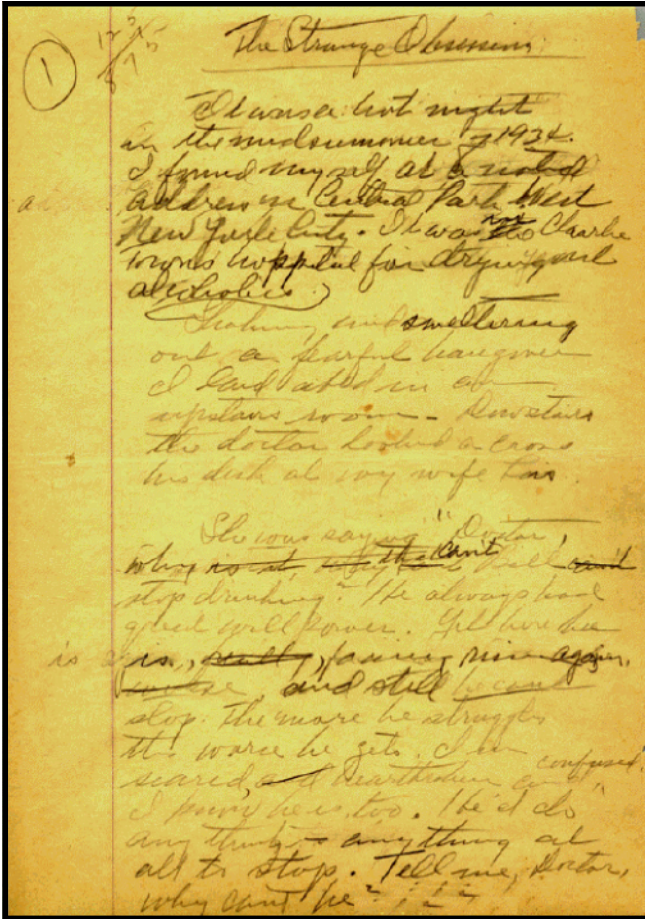 1
The Strange Obsession
It was a hot night
in the midsummer of 1934.
I found myself at a noted
address in Central Park West
New York City. It was the Charlie
Towns hospital for drying out
alcoholics.
and sweltering
out a fearful hangover
I laid abed in an
upstairs room - Downstairs
the doctor looked across
his desk at my wife Lois.
She was saying "Doctor,
why can't Bill
stop drinking? He always had
good will power. Yet here he
is, really, facing ruin again,
and still he can't
stop. The more he struggles
the worse he gets. I'm
scared, and heartbroken and confused.
I know he is, too. He'd do
anything - anything at
all to stop. Tell me, Doctor,
why can't he?